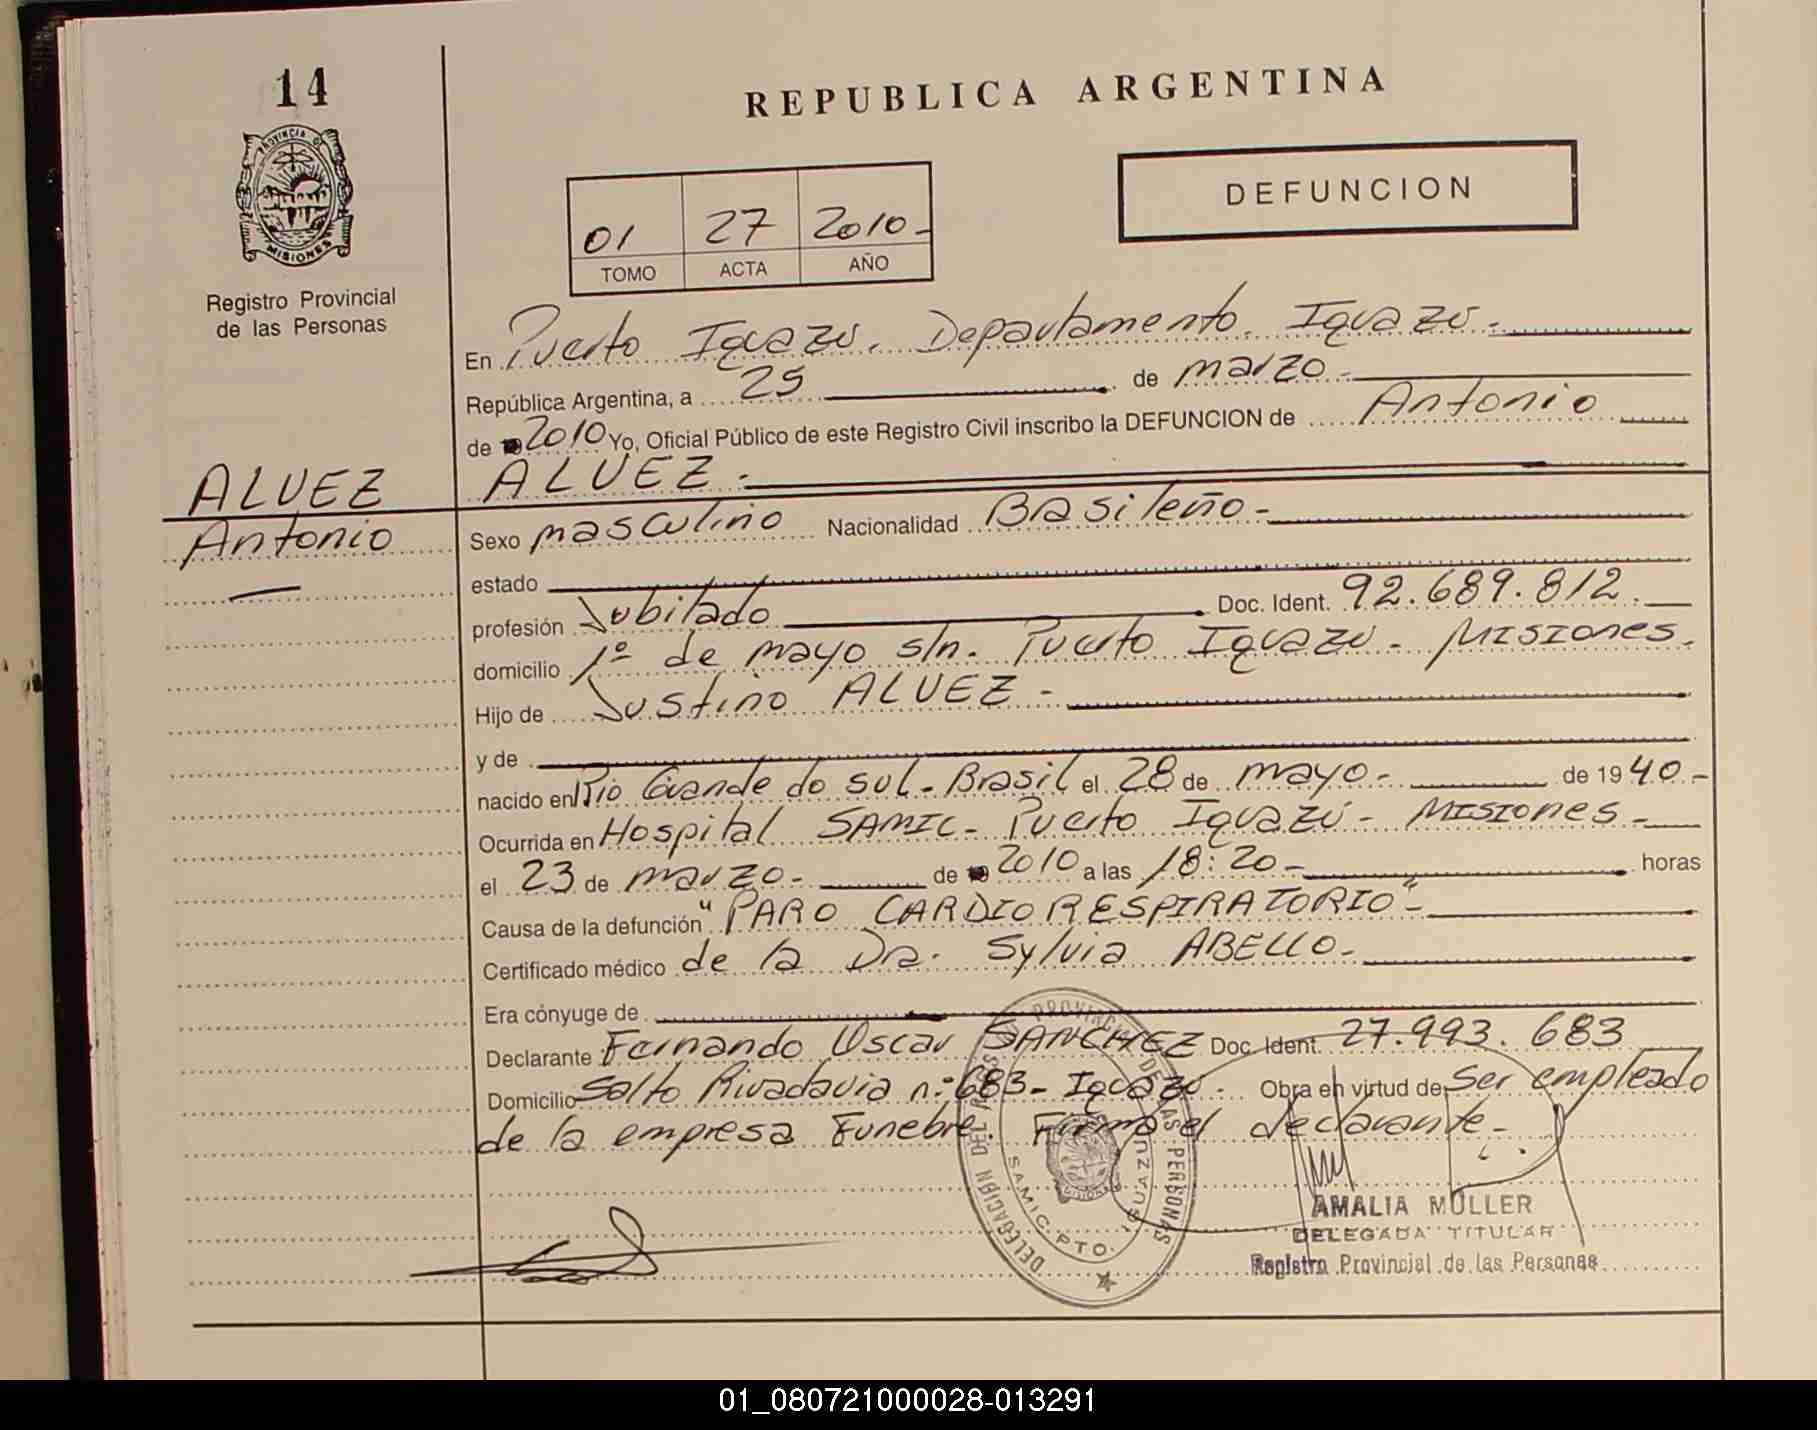 14
PROVINCIA DE
MISIONES
Registro Provincial
de las Personas
REPUBLICA ARGENTINA
DEFUNCION
01 27 2010-
TOMO ACTA AÑO
En Puerto Iguazú. Departamento. Iguazú -
República Argentina, a 25 de marzo -
de 2010 Yo, Oficial Público de este Registro Civil inscribo la DEFUNCION de Antonio
ALVEZ ALVEZ -
Antonio
Sexo masculino Nacionalidad Brasileño -
estado
profesión Jubilado Doc. Ident. 92.689.812.
domicilio 1º de mayo s/n. Puerto Iguazú - Misiones.
Hijo de Justino ALVEZ -
y de
nacido en Rio Grande do sul - Brasil el 28 de mayo - de 1940 -
Ocurrida en Hospital SAMIC - Puerto Iguazú - Misiones -
el 23 de marzo - de 2010 a las 18:20 - horas
Causa de la defunción "PARO CARDIORESPIRATORIO" -
Certificado médico de la Dra. Sylvia ABELLO -
Era cónyuge de
Declarante Fernando Oscar SANCHEZ Doc. Ident. 27.993.683
Domicilio Salto Rivadavia n: 683 - Iguazú - Obra en virtud de Ser empleado
de la empresa Funebre. Firma el declarante -
DELEGACION DEL PROVINCIAL DE LAS PERSONAS
SAMIC. PTO. IGUAZU
AMALIA MULLER
DELEGADA TITULAR
Registro Provincial de las Personas
01_080721000028-013291